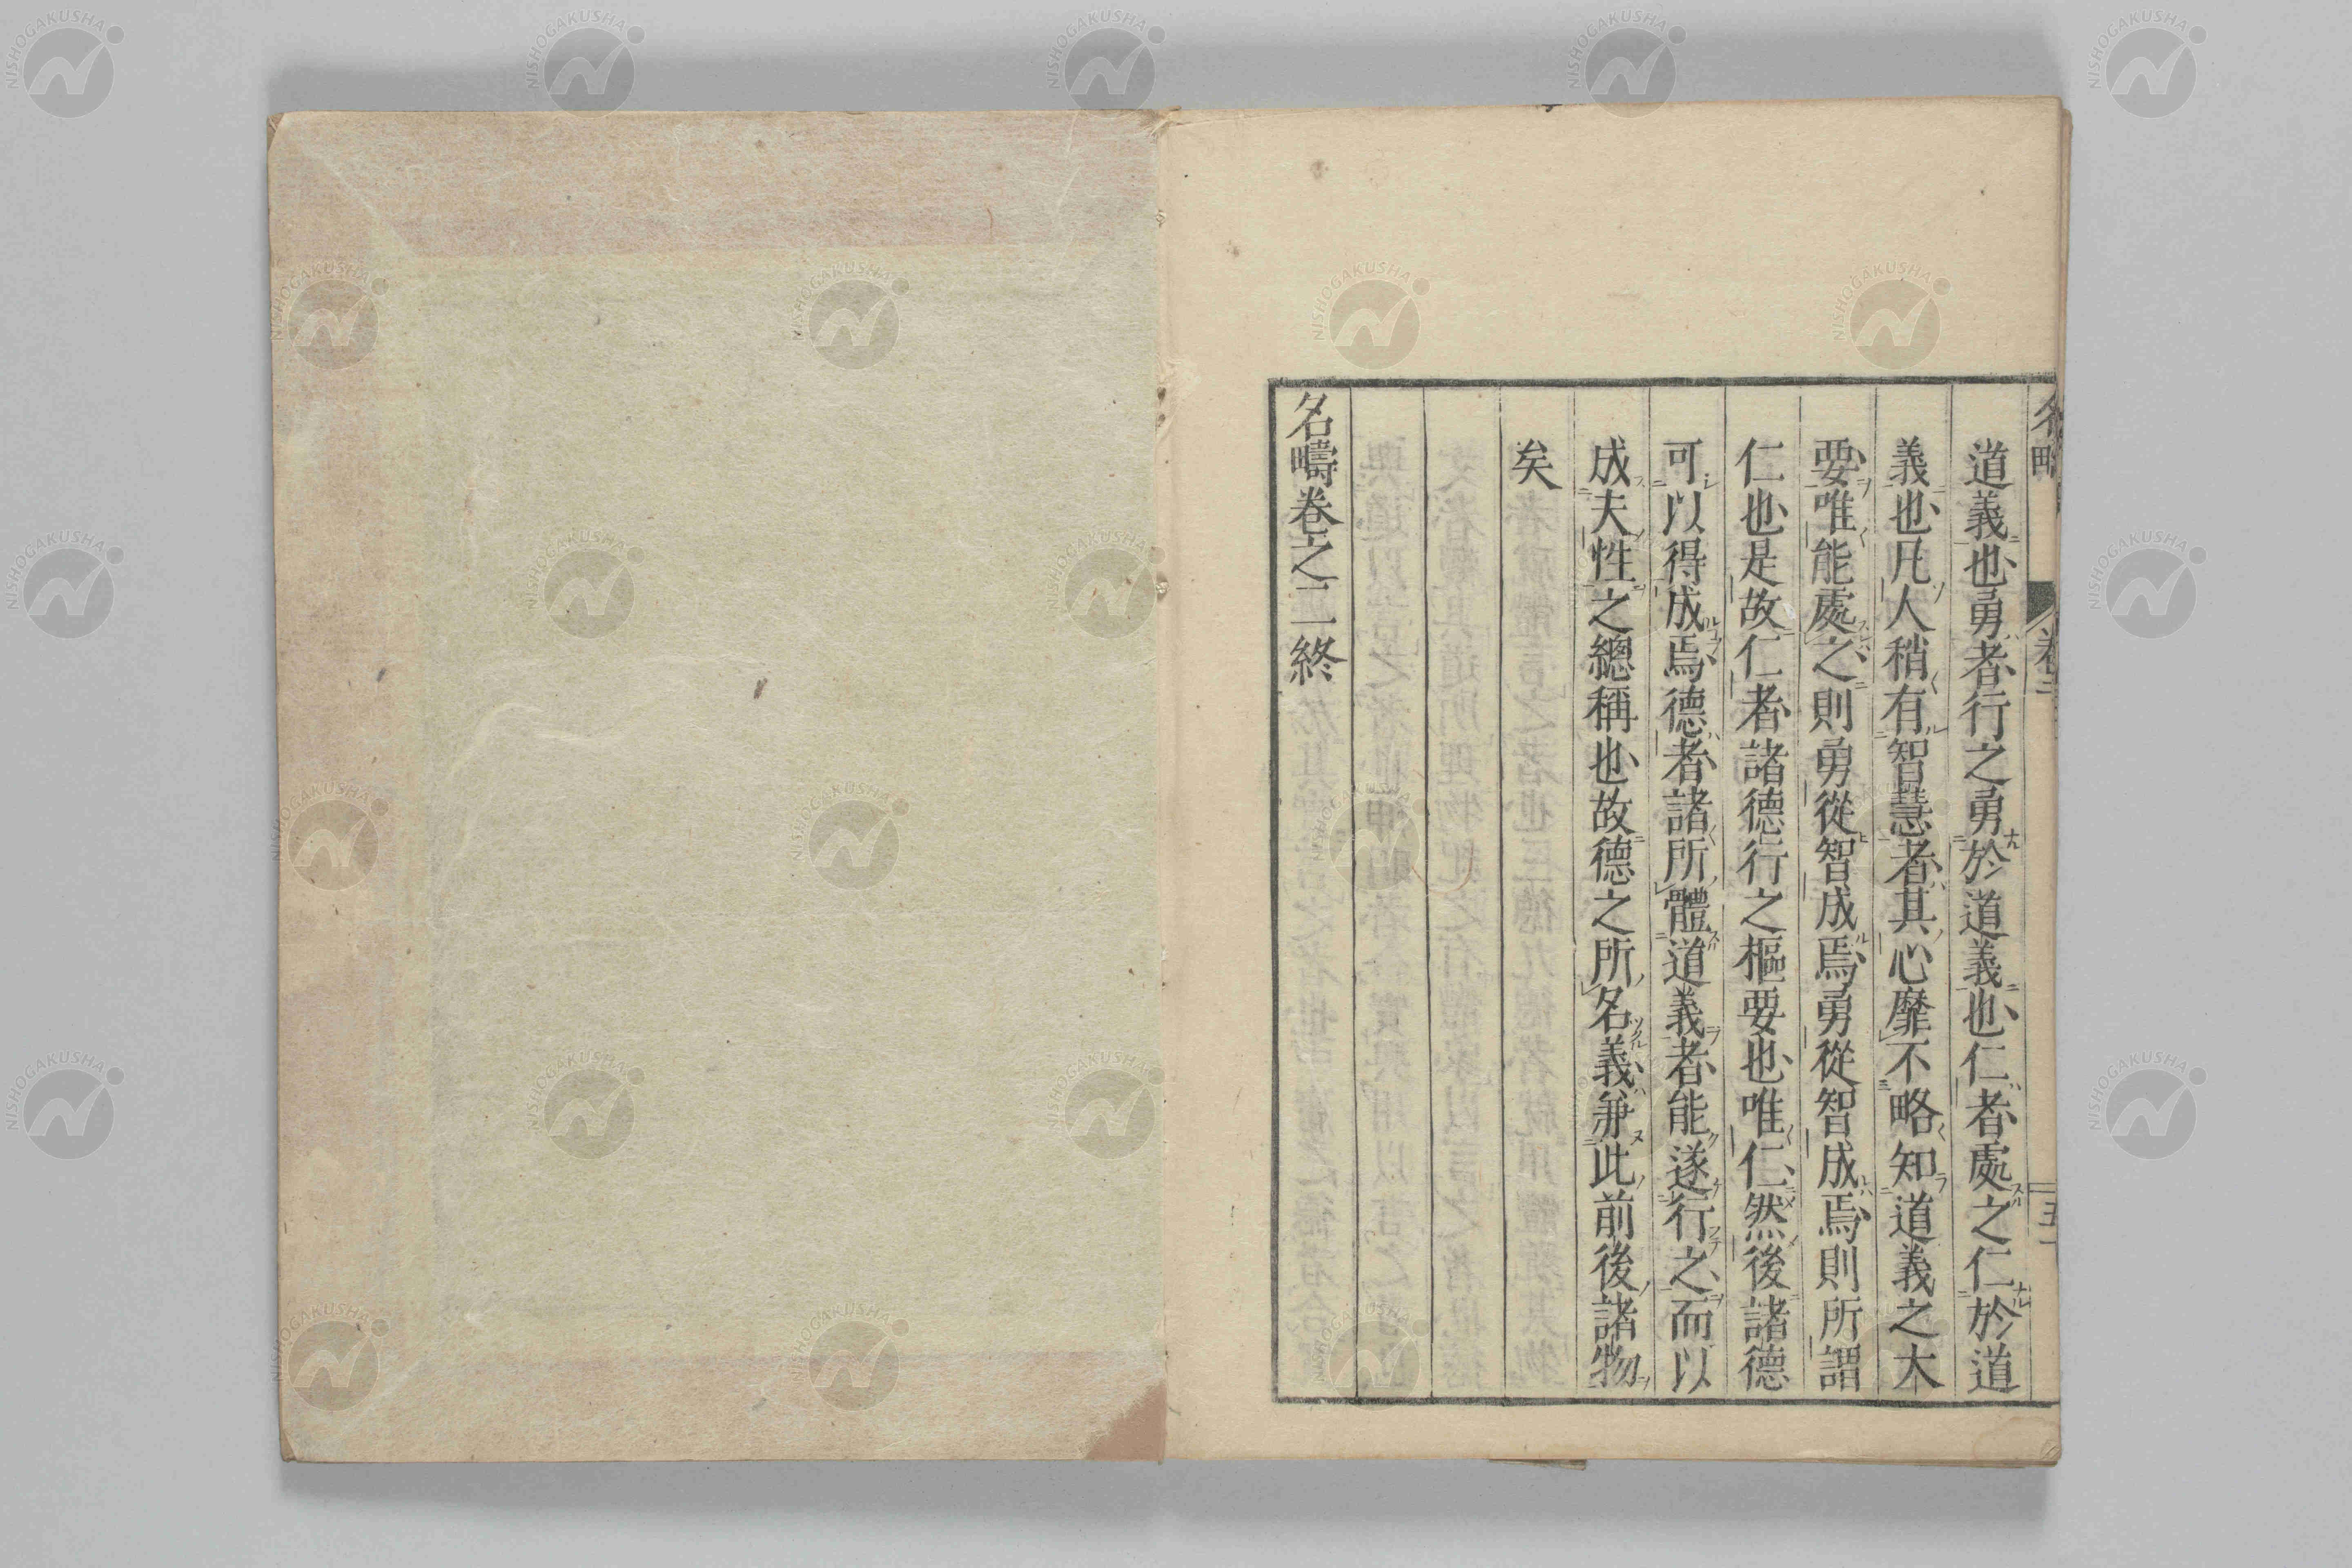 道義也勇者行之勇於道義也仁者處之仁於道
義也凡人稍有智慧者其心靡不略知道義之大
要唯能處之則勇從智成焉勇從智成焉則所謂
仁也是故仁者諸德行之樞要也唯仁然後諸德
可以得成焉德者諸所體道義者能遂行之而以
成夫性之總稱也故德之所名義兼此前後諸物
矣
名疇卷之二終